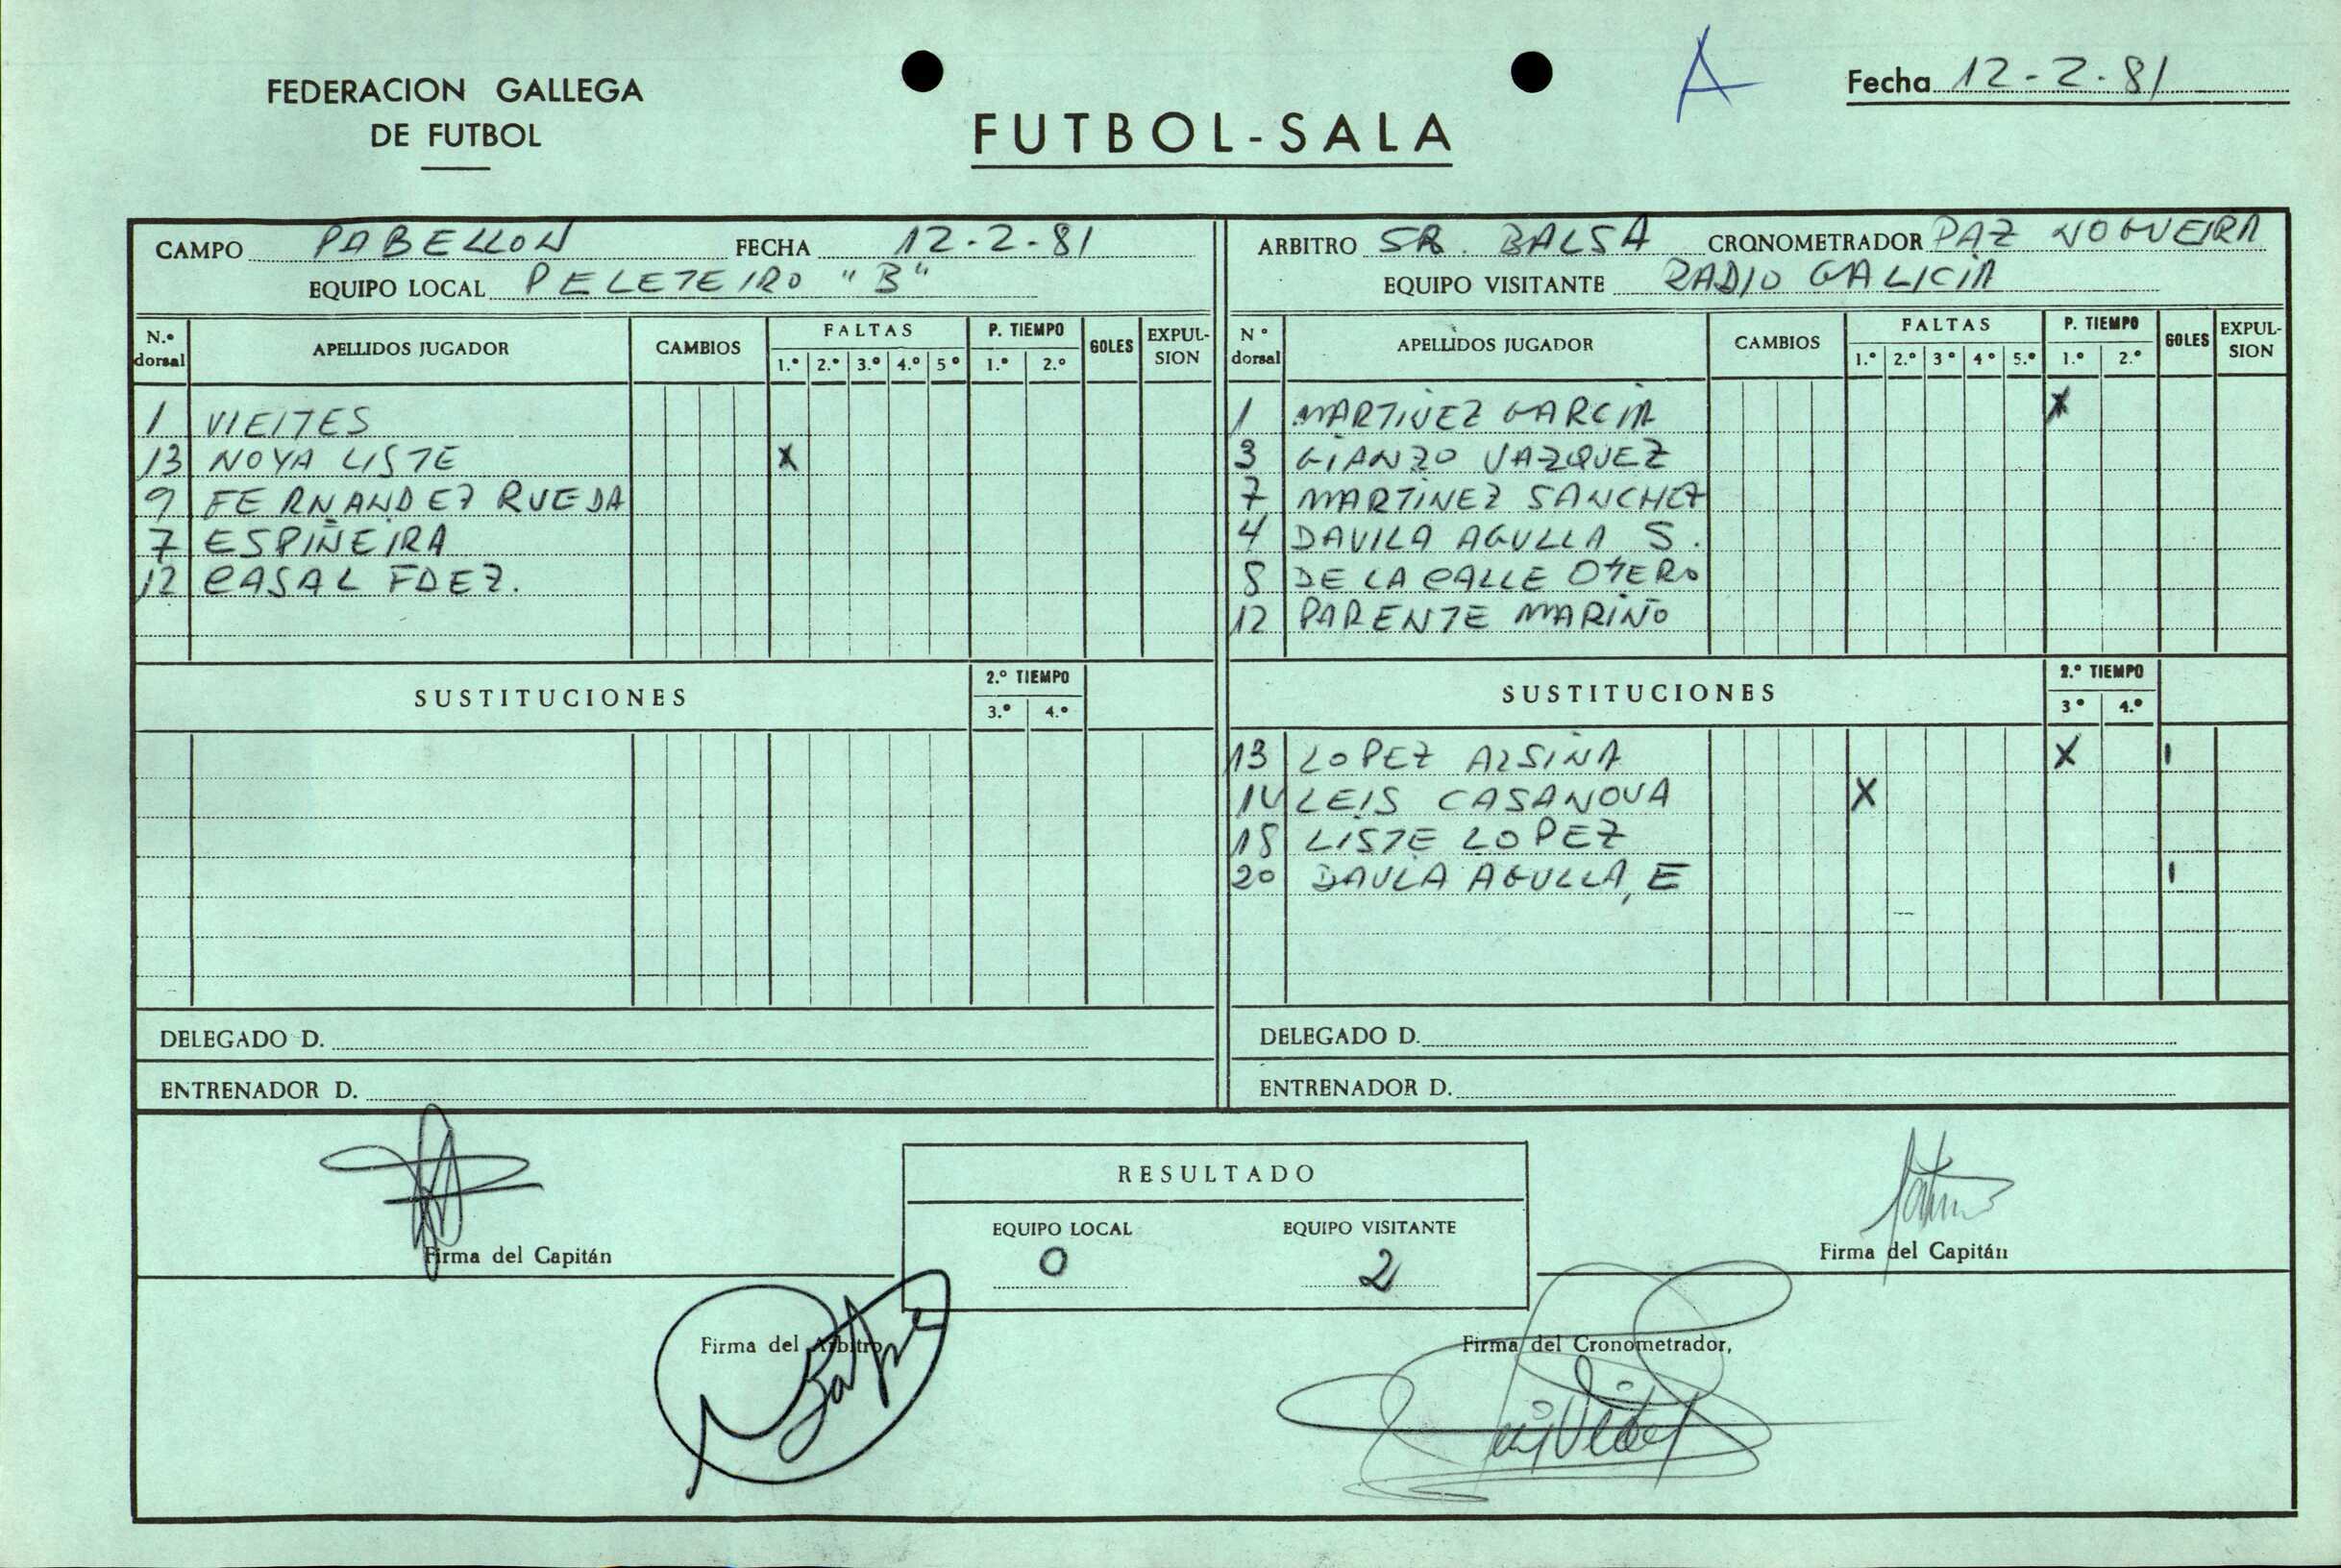 A
Fecha 12-2-81
FEDERACION GALLEGA
DE FUTBOL
FUTBOL-SALA
CAMPO PABELLON FECHA 12-2-81
EQUIPO LOCAL PELETEIRO "B"
N.º dorsal APELLIDOS JUGADOR CAMBIOS FALTAS 1.º 2.º 3.º 4.º 5º P. TIEMPO 1.º 2.º GOLES EXPUL-SION
1 VIEITES
13 NOYA LISTE X
9 FERNANDEZ RUEDA
7 ESPIÑEIRA
12 CASAL FDEZ.
SUSTITUCIONES 2.º TIEMPO 3.º 4.º
DELEGADO D.
ENTRENADOR D.
ARBITRO SR. BALSA CRONOMETRADOR PAZ NOGUEIRA
EQUIPO VISITANTE RADIO GALICIA
Nº dorsal APELLIDOS JUGADOR CAMBIOS FALTAS 1.º 2.º 3º 4º 5.º P. TIEMPO 1.º 2.º GOLES EXPUL-SION
1 MARTINEZ GARCIA X
3 GIANZO VAZQUEZ
7 MARTINEZ SANCHEZ
4 DAVILA AGULLA S.
8 DE LA CALLE OTERO
12 PARENTE MARIÑO
SUSTITUCIONES 2.º TIEMPO 3º 4.º
13 LOPEZ ALSINA X I
14 LEIS CASANOVA X
18 LISTE LOPEZ
20 DAVLA AGULLA, E I
DELEGADO D.
ENTRENADOR D.
RESULTADO
EQUIPO LOCAL EQUIPO VISITANTE
0 2
Firma del Capitán
Firma del Capitán
Firma del Arbitro
Firma del Cronometrador,